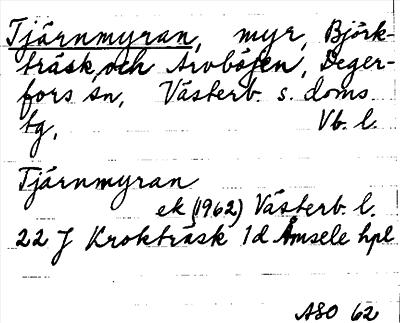 Tjärnmyran, myr, Björk-
träsk och Arvböjen, Deger-
fors sn, Västerb. s. doms.
tg, Vb. l.
Tjärnmyran
ek (1962) Västerb. l.
22 J Krokträsk 1d Åmsele hpl
ASO 62